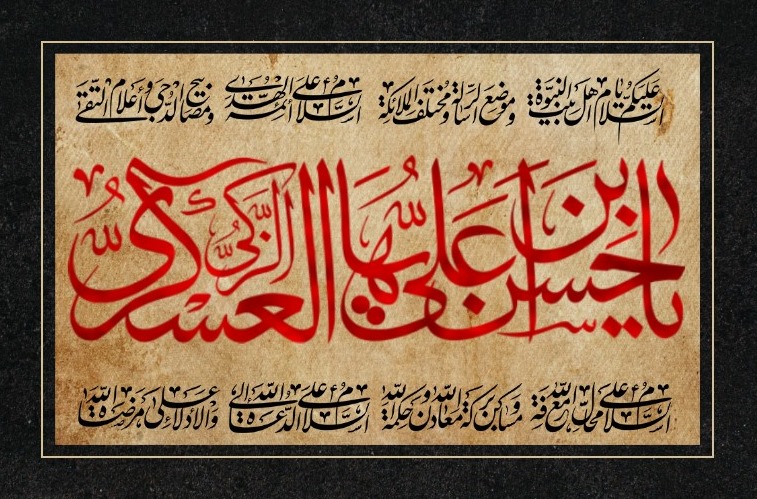 السلام عليكم يا أهل بيت النبوة وموضع الرسالة ومختلف الملائكة السلام على أئمة الهدى ومصابيح الدجى وأعلام التقى
يا حسن ابن علي أيها الزكي العسكري
السلام على محال معرفة الله ومساكن بركة الله ومعادن حكمة الله السلام على الدعاة إلى الله والأدلاء على مرضاة الله